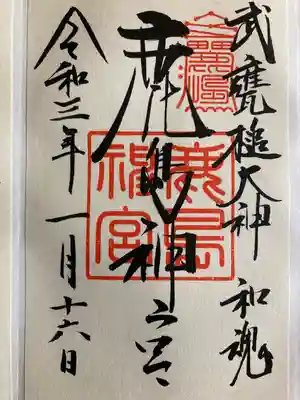 武甕槌大神 和魂
鹿島神宮
鹿島神宮
令和三年一月十六日